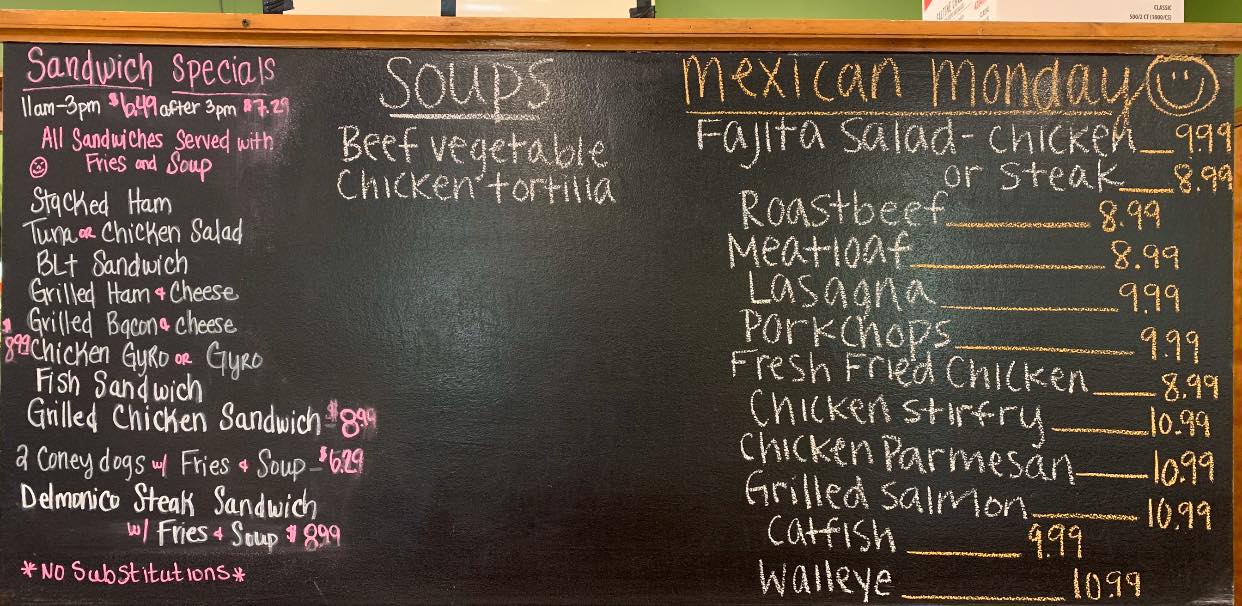 Sandwich Specials
11am-3pm $6.49 after 3pm $7.29
All Sandwiches Served with
Fries and Soup
Stacked Ham
Tuna or Chicken Salad
BLt Sandwich
Grilled Ham & Cheese
Grilled Bacon & cheese
$8.99 Chicken Gyro or Gyro
Fish Sandwich
Grilled Chicken Sandwich - $8.99
2 Coney dogs w/ Fries & Soup - $6.29
Delmonico Steak Sandwich
w/ Fries & Soup $8.99
*No Substitutions*
Soups
Beef vegetable
Chicken tortilla
Mexican Monday
Fajita Salad - Chicken 9.99
or Steak 8.99
Roastbeef 8.99
Meatloaf 8.99
Lasagna 9.99
Pork Chops 9.99
Fresh Fried Chicken 8.99
Chicken stirfry 10.99
Chicken Parmesan 10.99
Grilled Salmon 10.99
Catfish 9.99
Walleye 10.99
CLASSIC
500/2 CT (1000/CS)